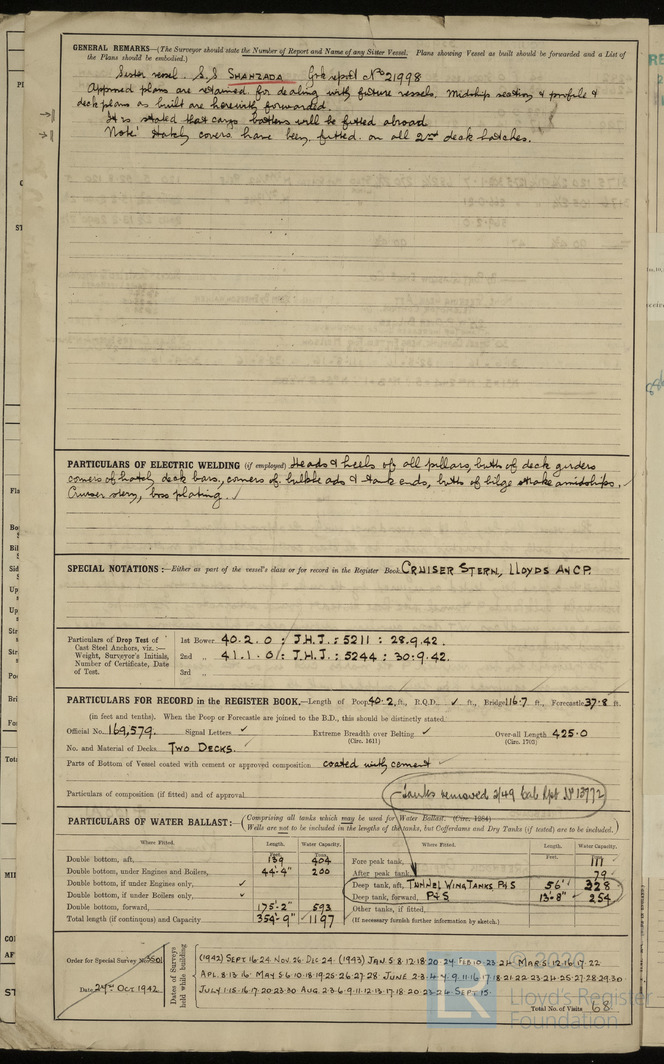 GENERAL REMARKS—(The Surveyor should state the Number of Report and Name of any Sister Vessel. Plans showing Vessel as built should be forwarded and a List of
the Plans should be embodied.)
Sister vessel. S.S SHAHZADA Gck report No 21998
Approved plans are retained for dealing with future vessels. Midship section & profile &
deck plans as built are herewith forwarded.
It is stated that cargo battens will be fitted abroad
Note: Hatch covers have been fitted on all 2nd deck hatches.
PARTICULARS OF ELECTRIC WELDING (if employed) Heads & heels of all pillars, butts of deck girders
corners of hatch deck bars, corners of bulkheads & tank ends, butts of bilge strake amidships.
Cruiser stern, boss plating.
SPECIAL NOTATIONS:—Either as part of the vessel's class or for record in the Register Book. CRUISER STERN, LLOYDS A & CP.
Particulars of Drop Test of
Cast Steel Anchors, viz.:—
Weight, Surveyor's Initials,
Number of Certificate, Date
of Test.
1st Bower 40.2.0 : J.H.J. : 5211 : 28.9.42.
2nd „ 41.1.0 : J.H.J. : 5244 : 30.9.42.
3rd „
PARTICULARS FOR RECORD in the REGISTER BOOK.—Length of Poop 40.2 ft., R.Q.D. ✓ ft., Bridge 116.7 ft., Forecastle 37.8 ft.
(in feet and tenths). When the Poop or Forecastle are joined to the B.D., this should be distinctly stated.
Official No. 169,579. Signal Letters ✓ Extreme Breadth over Belting ✓ (Circ. 1611) Over-all Length 425.0 (Circ. 1703)
No. and Material of Decks TWO DECKS.
Parts of Bottom of Vessel coated with cement or approved composition coated with cement
Particulars of composition (if fitted) and of approval
Tanks removed 3/49 Cal Rpt No 13772
PARTICULARS OF WATER BALLAST:— (Comprising all tanks which may be used for Water Ballast. (Circ. 1284)
Wells are not to be included in the lengths of the tanks, but Cofferdams and Dry Tanks (if tested) are to be included.)
Where Fitted. Length. Water Capacity. Where Fitted. Length. Water Capacity.
Feet. Tons.
Double bottom, aft, 139 404 Fore peak tank, 111
Double bottom, under Engines and Boilers, 44'-4" 200 After peak tank, 79
Double bottom, if under Engines only, ✓ Deep tank, aft, TUNNEL WING TANKS P&S 56' 328
Double bottom, if under Boilers only, ✓ Deep tank, forward, P&S 13'-8" 254
Double bottom, forward, 175'-2" 593 Other tanks, if fitted,
Total length (if continuous) and Capacity 359'-9" 1197 (If necessary furnish further information by sketch.)
Order for Special Survey No.
Date 24th OCT 1942
Dates of Surveys held while building
(1942) SEPT 16.24 NOV. 26. DEC. 24. (1943) JAN 5.8.12.18.20.24. FEB 10.23.24. MAR 5.12.16.17.22
APL. 8.13.16. MAY 5.6.10.18.19.25.26.27.28. JUNE 2.3.4.7.9.11.16.17.18.21.22.23.24.25.27.28.29.30
JULY 1.15.16.17.20.23.30 AUG. 2.3.6.9.11.12.13.17.18.20.23.24. SEPT 15.
Total No. of Visits 68
© 2020
LR
Lloyd's Register
Foundation